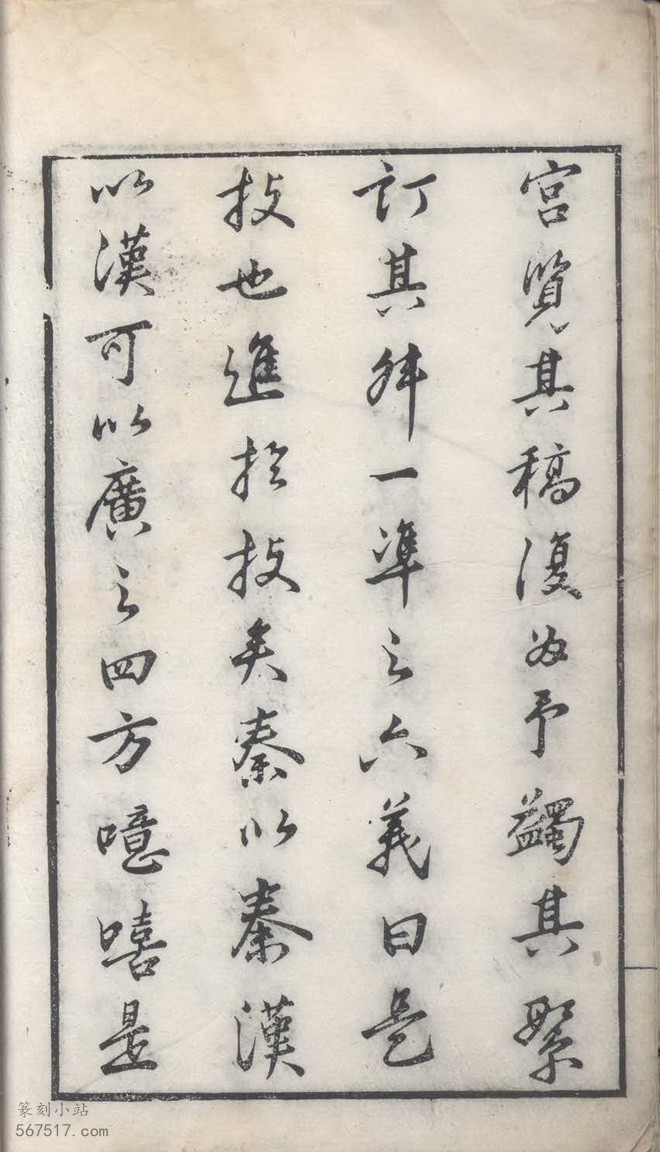 宫覽其稿復為予蠲其緐
訂其舛一準之六義曰是
技也進於技矣秦以秦漢
以漢可以廣之四方噫嘻是
篆刻小站
567517.com